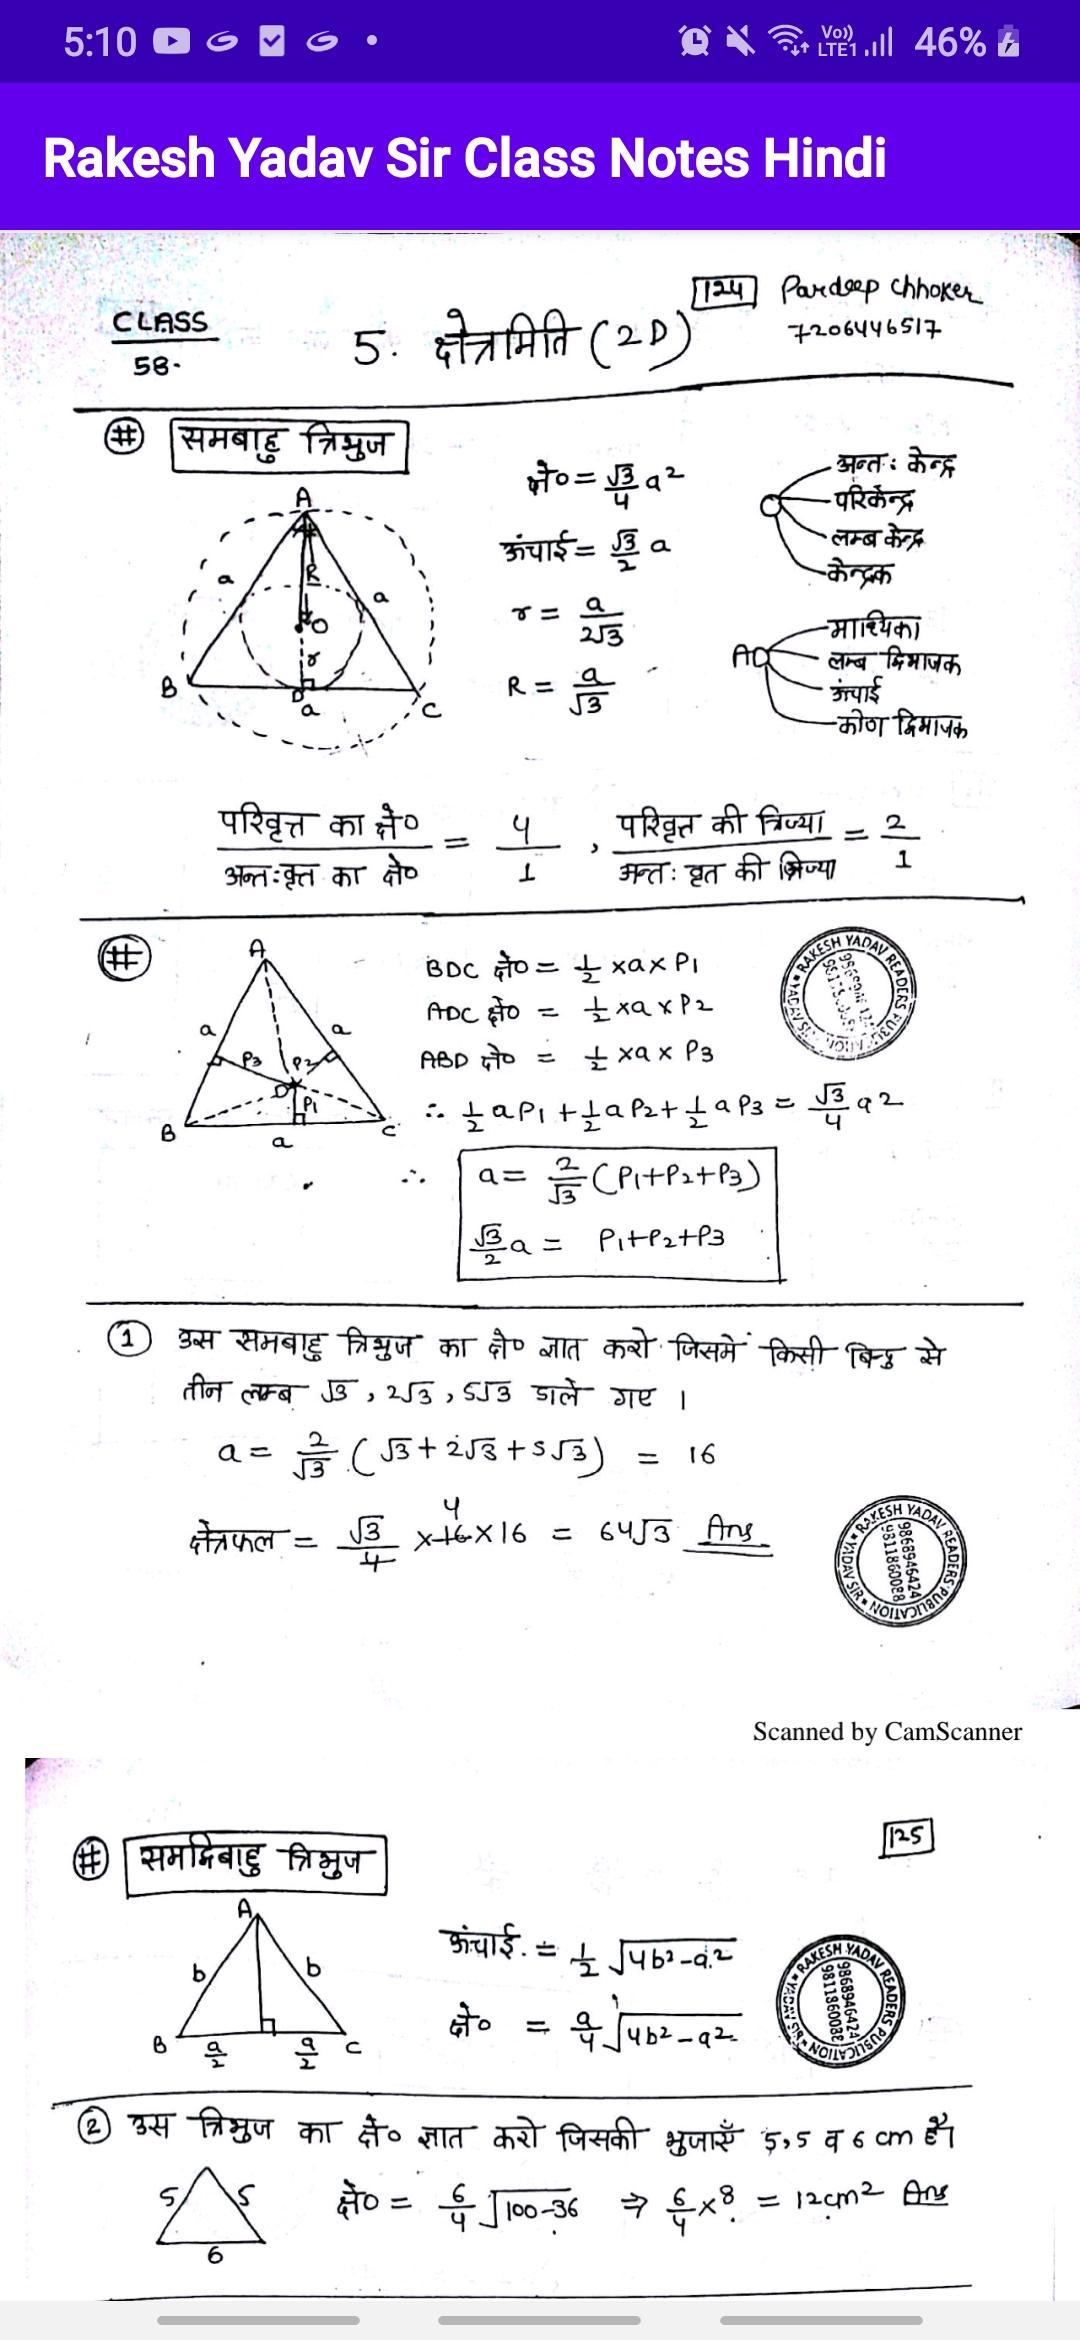 5:10
Vo)) LTE1 46%
Rakesh Yadav Sir Class Notes Hindi
124 Pardeep Chhoker
7206446517
CLASS
58.
5. क्षेत्रमिति (2D)
# समबाहु त्रिभुज
क्षे० = √3/4 a²
ऊंचाई = √3/2 a
r = a/2√3
R = a/√3
O
अन्तः केन्द्र
परिकेन्द्र
लम्ब केन्द्र
केन्द्रक
AD
माध्यिका
लम्ब द्विभाजक
ऊंचाई
कोण द्विभाजक
A
a
R
a
O
r
B
D
a
C
परिवृत्त का क्षे० / अन्तःवृत्त का क्षे० = 4/1 , परिवृत्त की त्रिज्या / अन्तः वृत की त्रिज्या = 2/1
#
A
a
a
P3
P2
O
P1
B
a
C
BDC क्षे० = 1/2 × a × P1
ADC क्षे० = 1/2 × a × P2
ABD क्षे० = 1/2 × a × P3
∴ 1/2 a P1 + 1/2 a P2 + 1/2 a P3 = √3/4 a2
∴ a = 2/√3 (P1+P2+P3)
√3/2 a = P1+P2+P3
RAKESH YADAV READERS PUBLICATION
① उस समबाहु त्रिभुज का क्षे० ज्ञात करो जिसमें किसी बिन्दु से
तीन लम्ब √3, 2√3, 5√3 डाले गए ।
a = 2/√3 (√3 + 2√3 + 5√3) = 16
क्षेत्रफल = √3/4 × 16 × 16 = 64√3 Ans
4
RAKESH YADAV READERS PUBLICATION YADAV SIR
9868946424
9811860088
Scanned by CamScanner
125
# समद्विबाहु त्रिभुज
A
b
b
B
a/2
a/2
C
ऊंचाई. = 1/2 √4b²-a²
क्षे० = a/4 √4b2-a2
RAKESH YADAV READERS PUBLICATION YADAV SIR
9868946424
9811860088
② उस त्रिभुज का क्षे० ज्ञात करो जिसकी भुजाएँ 5,5 व 6 cm है।
5
5
6
क्षे० = 6/4 √100-36 ⇒ 6/4 × 8 = 12cm2 Ans